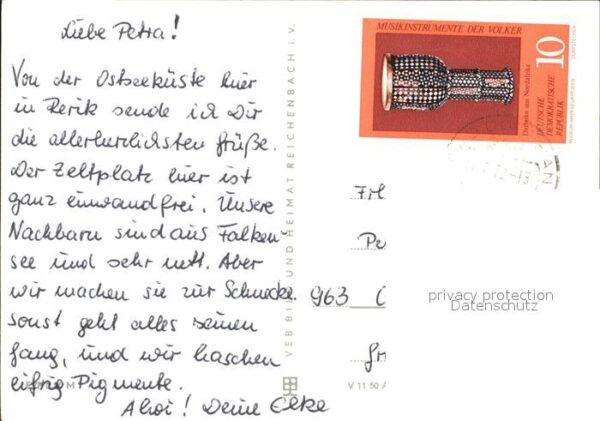 Liebe Petra!
Von der Ostseeküste hier
in Rerik sende ich Dir
die allerherzlichsten Grüße.
Der Zeltplatz hier ist
ganz einwandfrei. Unsere
Nachbarn sind aus Falken-
see und sehr nett. Aber
wir machen sie zur Schnecke.
sonst geht alles seinen
Gang, und wir haschen
eifrig Pigmente.
Ahoi! Deine Elke
VEB BILD UND HEIMAT REICHENBACH i. V.
V 11 50 A
MUSIKINSTRUMENTE DER VÖLKER
10
Darbuka aus Nordafrika
DEUTSCHE
DEMOKRATISCHE
REPUBLIK
Frl
Pe
963 C
privacy protection
Datenschutz